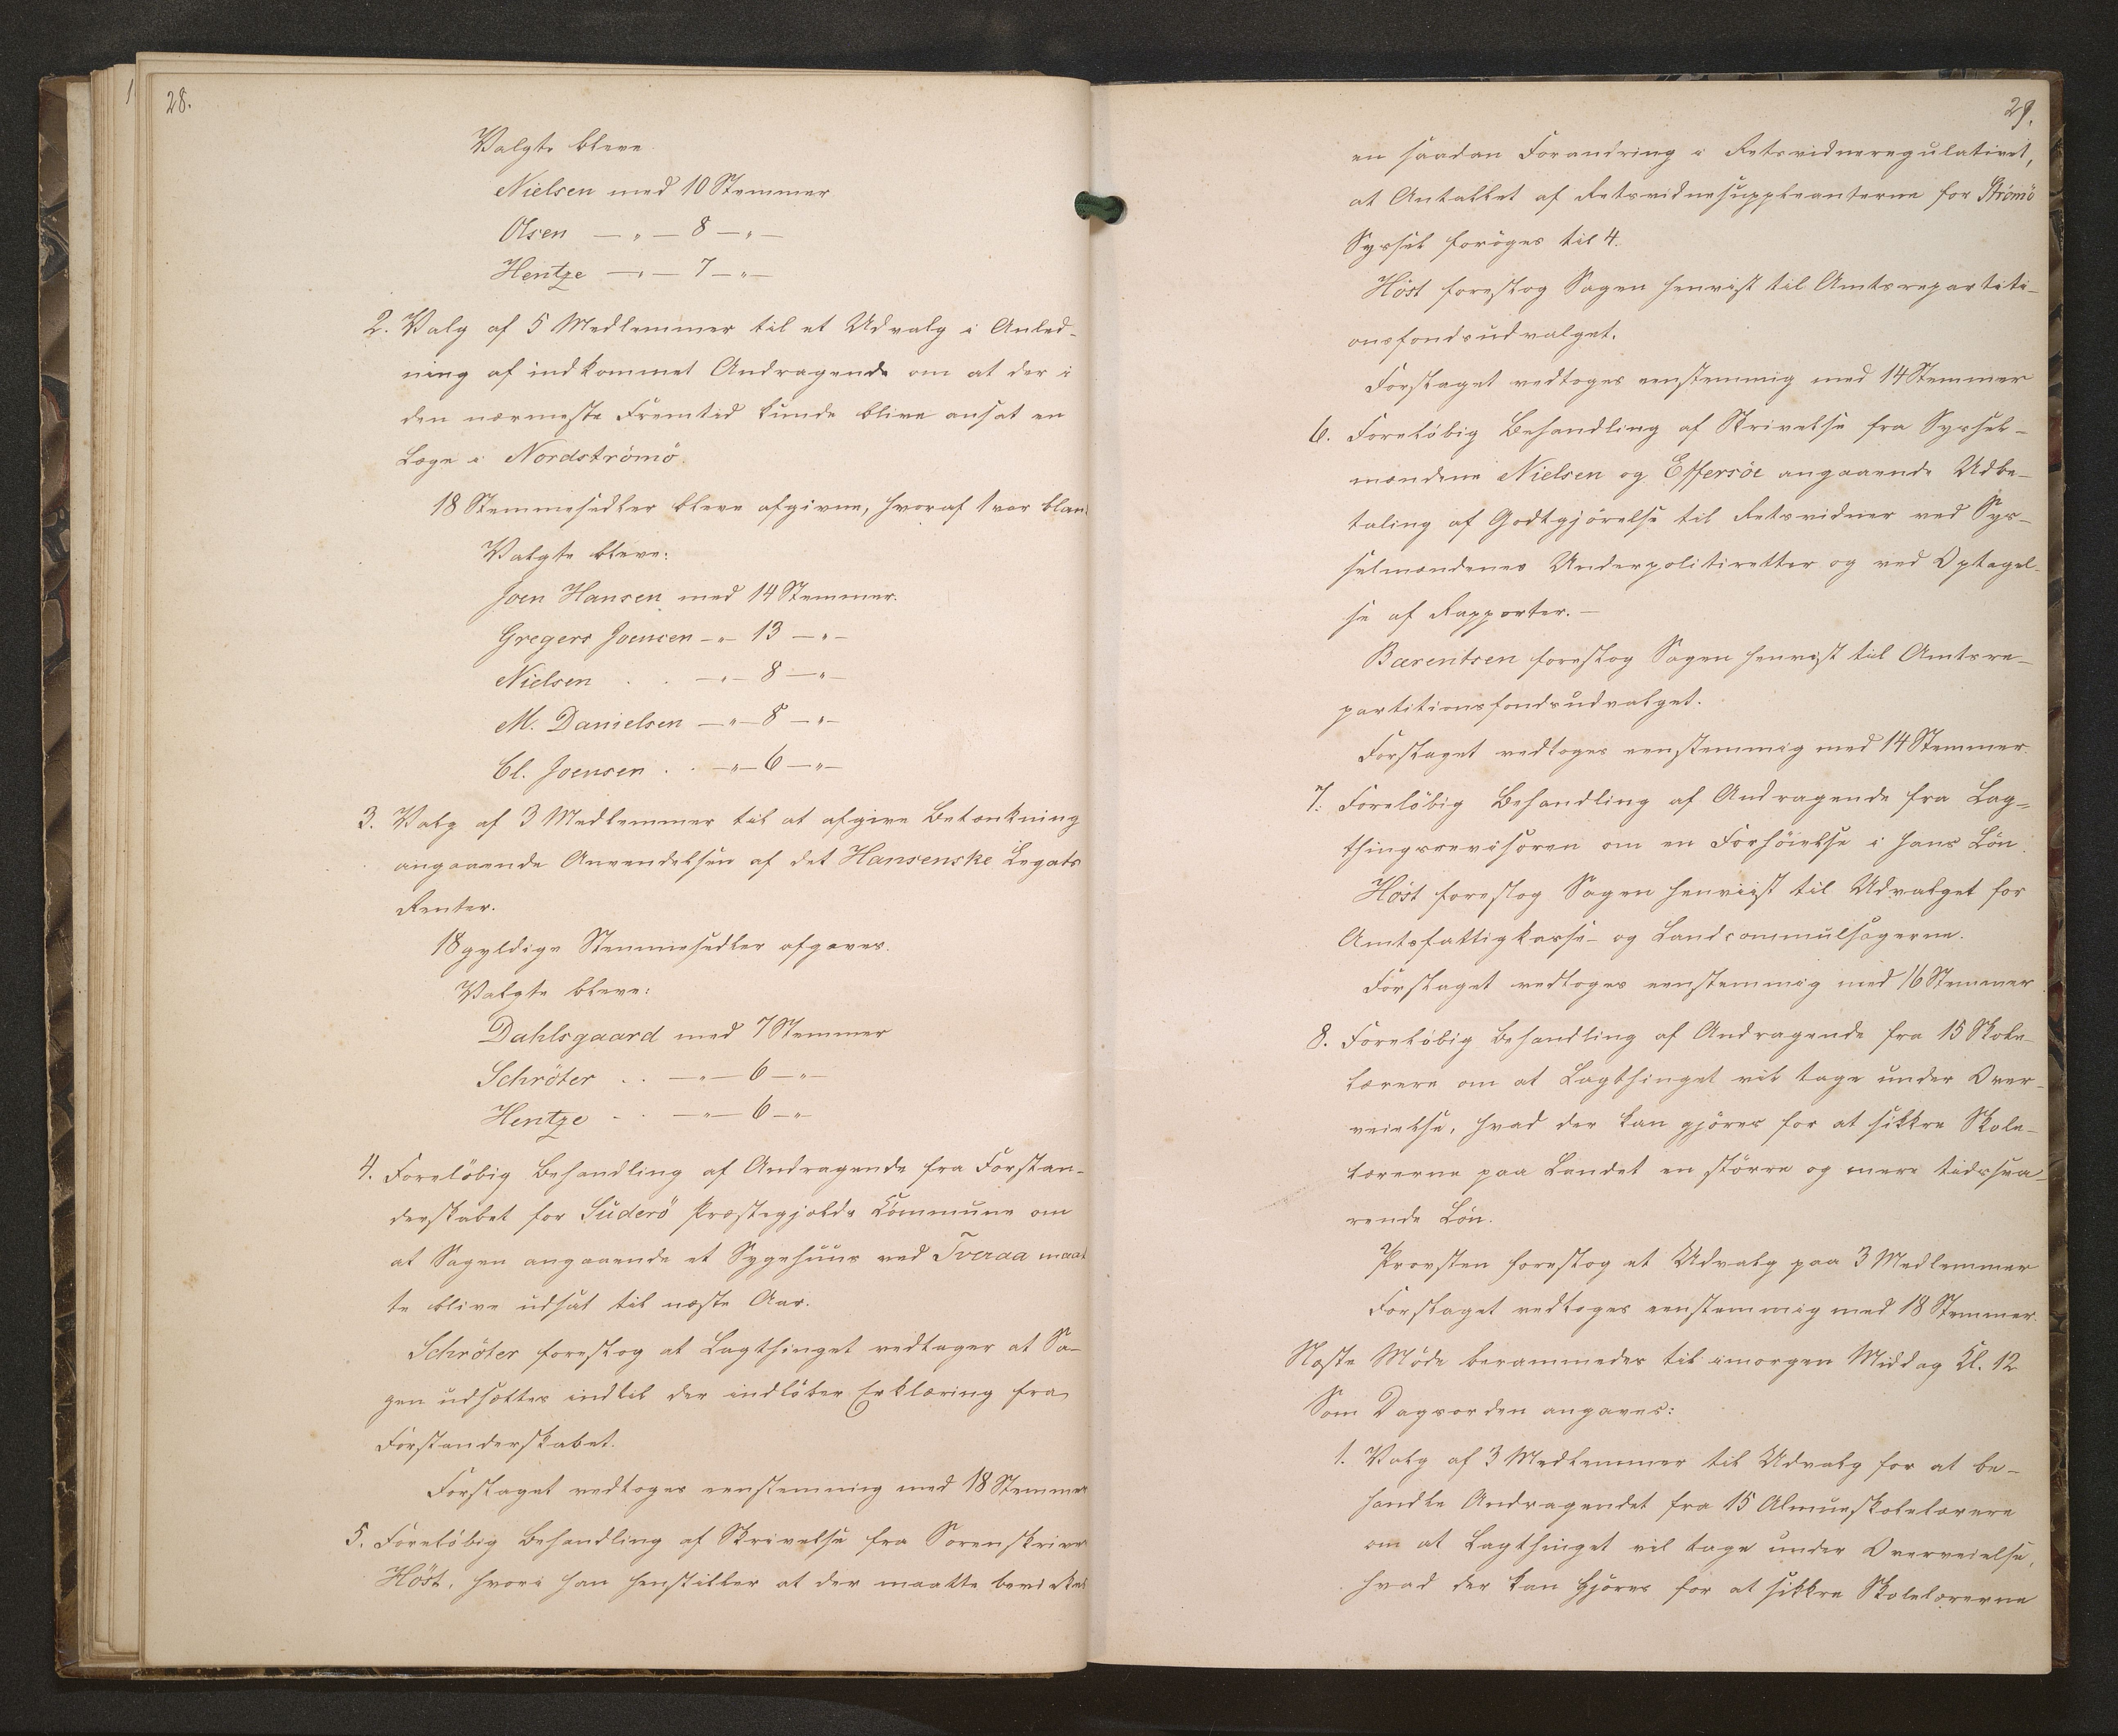 28.
Valgte bleve
Nielsen med 10 Stemmer
Olsen — " — 8 — " —
Hentze — " — 7 — " —
2. Valg af 5 Medlemmer til et Udvalg i Anled-
ning af indkommet Andragende om at der i
den nærmeste Fremtid kunde blive ansat en
Læge i Nordströmö.
18 Stemmesedler bleve afgivne, hvoraf 1 var blan
Valgte bleve:
Joen Hansen med 14 Stemmer.
Gregers Joensen — " — 13 — " —
Nielsen . . — " — 8 — " —
M. Danielsen — " — 8 — " —
Cl. Joensen . . — " — 6 — " —
3. Valg af 3 Medlemmer til at afgive Betænkning
angaaende Anvendelsen af det Hansenske Legats
Renter.
18 gyldige Stemmesedler afgaves.
Valgte bleve:
Dahlsgaard med 7 Stemmer
Schröter . . — " — 6 — " —
Hentze . . — " — 6 — " —
4. Foreløbig Behandling af Andragende fra Forstan-
derskabet for Suderö Præstegjælds Commune om
at Sagen angaaende et Sygehuus ved Tveraa maat
te blive udsat til næste Aar.
Schröter foreslog at Lagthinget vedtager at Sa-
gen udsættes indtil der indløber Erklæring fra
Forstanderskabet.
Forslaget vedtoges eenstemmig med 18 Stemmer
5. Foreløbig Behandling af Skrivelse fra Sorenskriver
Höst, hvori han henstiller at der maatte bevirkes
29.
en saadan Forandring i Retsvidneregulativet,
at Antallet af Retsvidnesuppleanterne for Strömö
Syssel forøges til 4.
Höst foreslog Sagen henvist til Amtsrepartiti-
onsfondsudvalget.
Forslaget vedtoges eenstemmig med 14 Stemmer
6. Foreløbig Behandling af Skrivelse fra Syssel-
mændene Nielsen og Effersöe angaaende Udbe-
taling af Godtgjørelse til Retsvidner ved Sys-
selmændenes Underpolitiretter og ved Optagel-
se af Rapporter. —
Bærentsen foreslog Sagen henvist til Amtsre-
partitionsfondsudvalget.
Forslaget vedtoges eenstemmig med 14 Stemmer.
7. Foreløbig Behandling af Andragende fra Lag-
thingsrevisoren om en Forhøielse i hans Løn.
Höst foreslog Sagen henviist til Udvalget for
Amtsfattigkasse- og Landcommunalsagerne.
Forslaget vedtoges eenstemmig med 16 Stemmer
8. Foreløbig Behandling af Andragende fra 15 Skole-
lærere om at Lagthinget vil tage under Over-
veielse, hvad der kan gjøres for at sikkre Skole-
lærerne paa Landet en større og mere tidssva-
rende Løn.
Provsten foreslog et Udvalg paa 3 Medlemmer
Forslaget vedtoges eenstemmig med 18 Stemmer.
Næste Møde berammedes til imorgen Middag Kl. 12
Som Dagsorden angaves:
1. Valg af 3 Medlemmer til Udvalg for at be-
handle Andragendet fra 15 Almueskolelærere
om at Lagthinget vil tage under Overveielse,
hvad der kan gjøres for at sikkre Skolelærerne